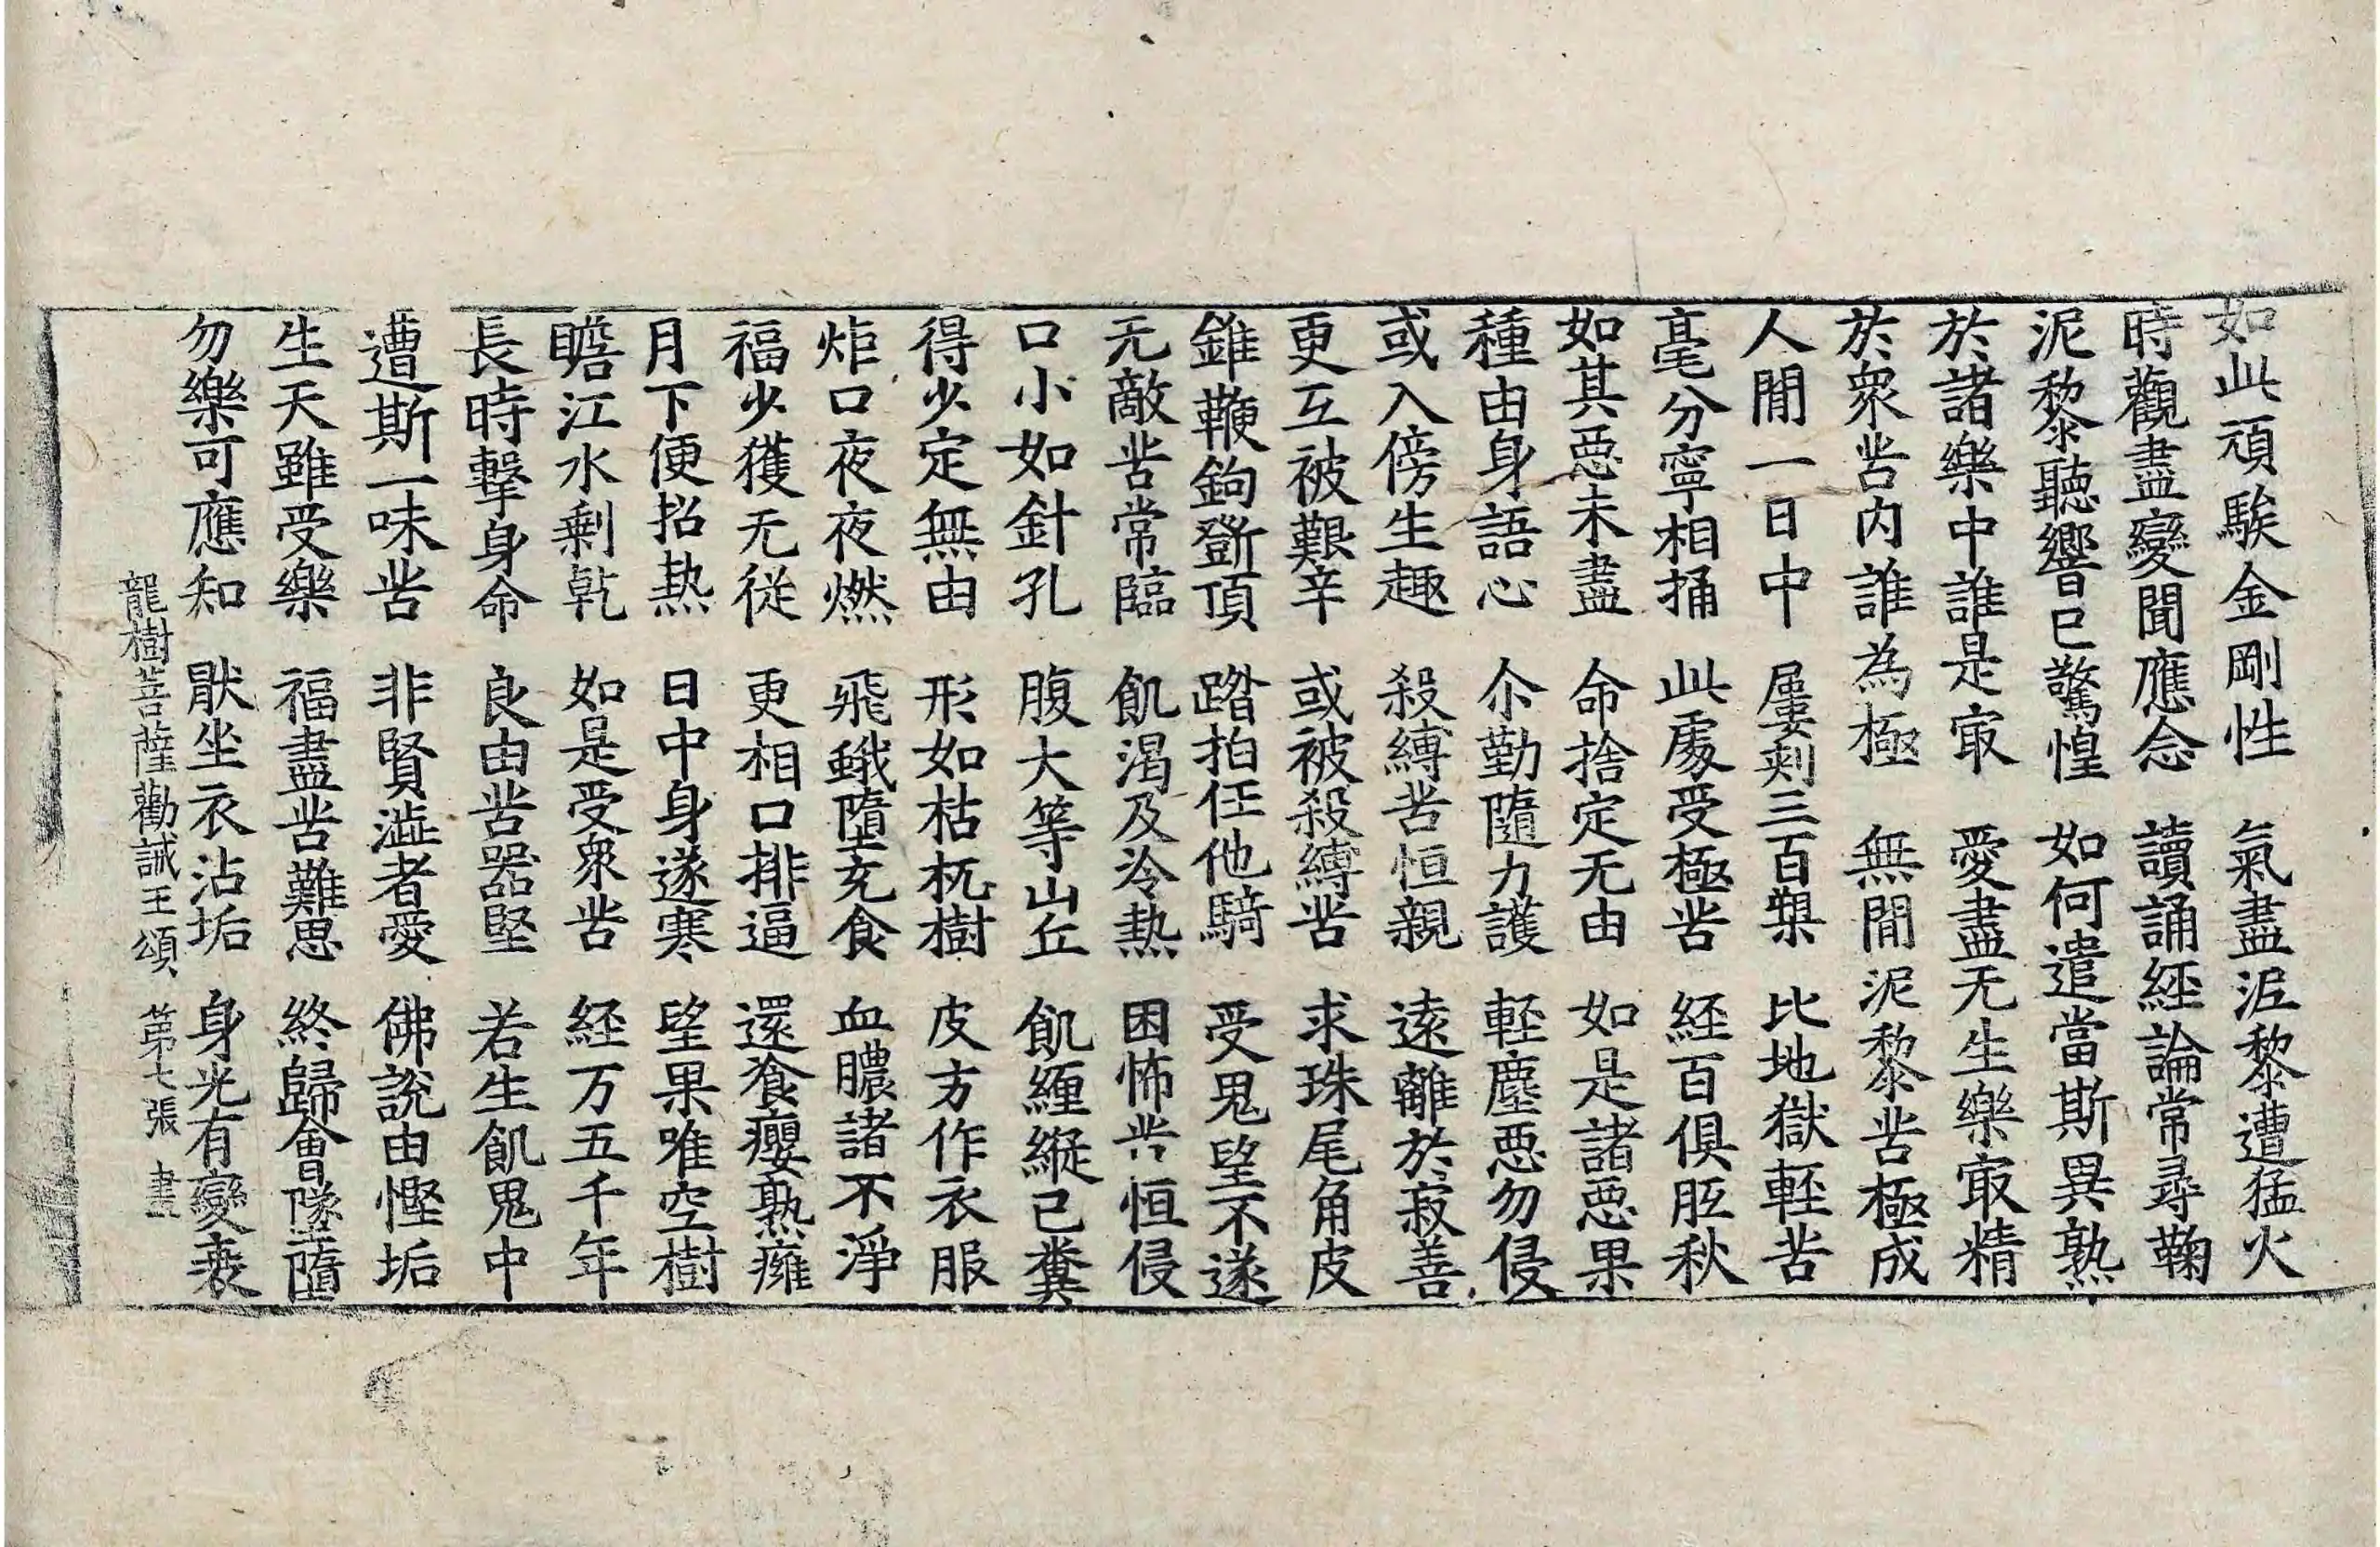 如此頑騃金剛性 氣盡泥黎遭猛火
時觀盡變聞應念 讀誦經論常尋鞠
泥黎聽響已驚惶 如何遣當斯異熟
於諸樂中誰是㝡 愛盡无生樂㝡精
於衆苦内誰為極 無間泥黎苦極成
人間一日中 屢刺三百槊 比地獄輕苦
毫分寧相捅 此處受極苦 経百俱胝秋
如其惡未盡 命捨定无由 如是諸惡果
種由身語心 尒勤隨力護 輕塵惡勿侵
或入傍生趣 殺縛苦恒親 遠離於寂善
更互被艱辛 或被殺縛苦 求珠尾角皮
錐鞭鉤斵頂 踏拍任他騎 受鬼望不遂
无敵苦常臨 飢渴及冷熱 困怖苦恒侵
口小如針孔 腹大等山丘 飢纏縱己糞
得少定無由 形如枯杌樹 皮方作衣服
炬口夜夜燃 飛蛾墮充食 血膿諸不淨
福少獲无從 更相口排逼 還飡癭熟癰
月下便招熱 日中身遂寒 望果唯空樹
瞻江水剩乾 如是受衆苦 経万五千年
長時擊身命 良由苦器堅 若生飢鬼中
遭斯一味苦 非賢澁者愛 佛說由慳垢
生天雖受樂 福盡苦難思 終歸會墜墮
勿樂可應知 猒坐衣沾垢 身光有變衰
龍樹菩薩勸誡王頌 第七張 畫